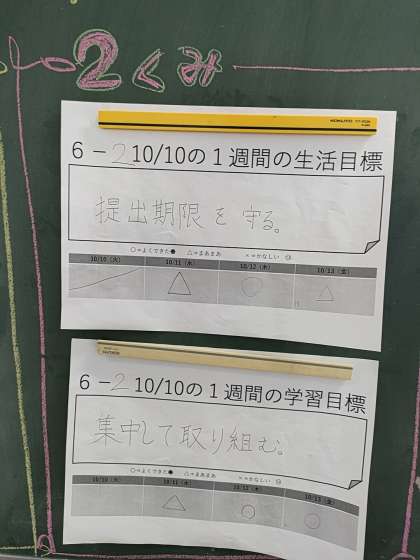 2くみ
KOKUYO
6-2 10/10の1週間の生活目標
提出期限を守る。
○=よくできた● △=まあまあ ×=かなしい
10/10(火) 10/11(水) 10/12(木) 10/13(金)
△ ○ △
6-2 10/10の1週間の学習目標
集中して取り組む。
○=よくできた● △=まあまあ ×=かなしい
10/10(火) 10/11(水) 10/12(木) 10/13(金)
△ ○ ○